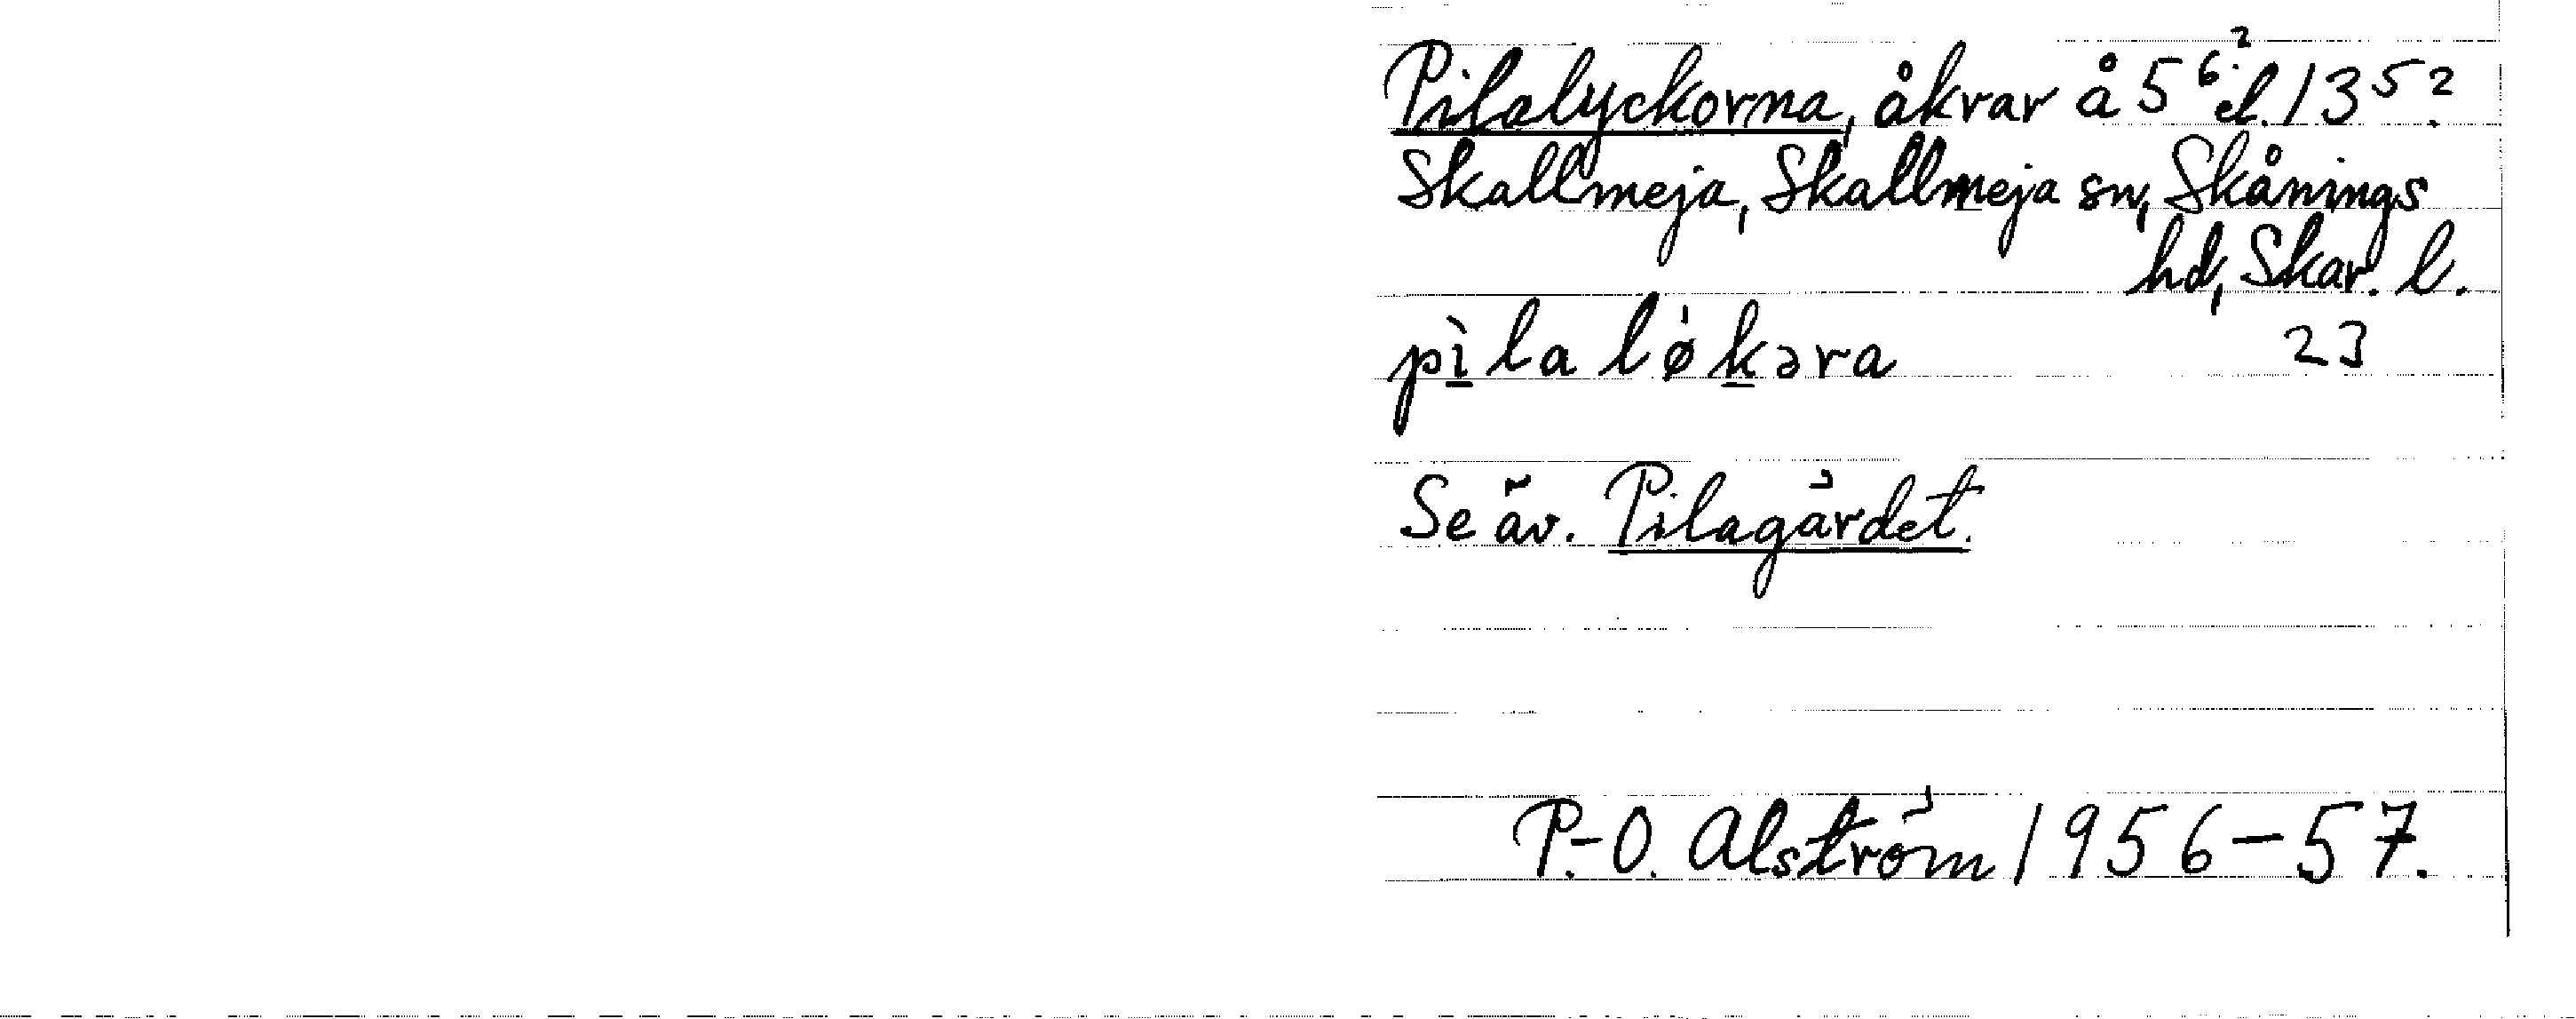 Pilalyckorna, åkrar å 5⁶² el. 13⁵?
Skallmeja, Skallmeja sn, Skånings
hd, Skar. l.
pìlaløkəra 23
Se äv. Pilagärdet.
P.-O. Alström 1956-57.